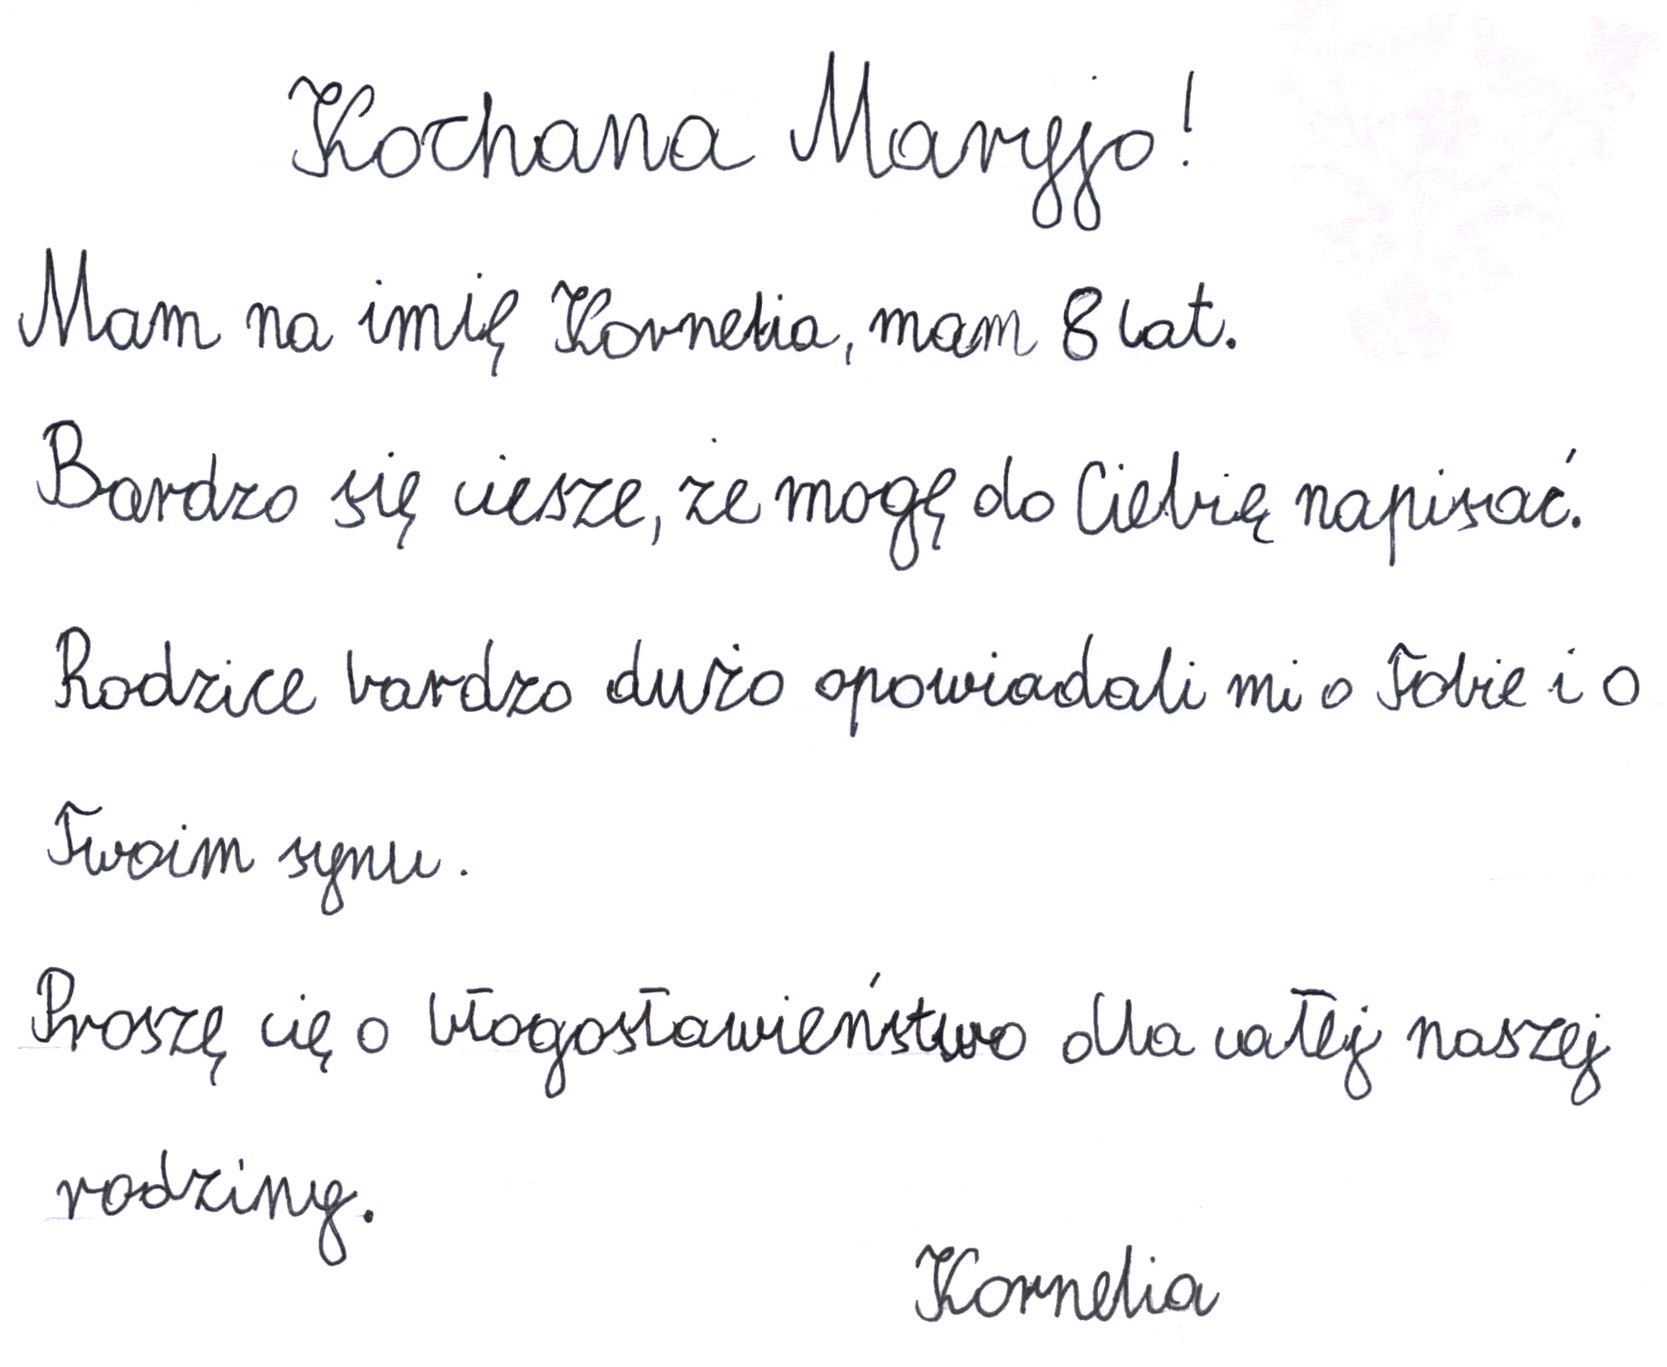 Kochana Maryjo!
Mam na imię Kornelia, mam 8 lat.
Bardzo się ciesze, że mogę do Ciebię napisać.
Rodzice bardzo dużo opowiadali mi o Tobie i o
Twoim synu.
Proszę cię o błogosławieństwo dla całej naszej
rodziny.
Kornelia